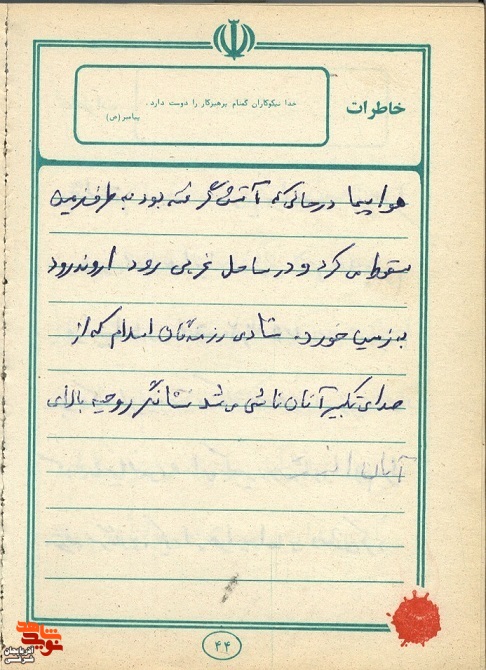 خاطرات
خدا نیکوکاران گمنام پرهیزکار را دوست دارد.
پیامبر (ص)
هواپیما در حالی که آتش گرفته بود به طرف زمین
سقوط می کرد و در ساحل غربی رود اروندرود
به زمین خورد. شادی رزمندگان اسلام که از
صدای تکبیر آنان ناشی می شد نشانگر روحیه بالای
آنان
۴۴
نوید شاهد
آذربایجان شرقی